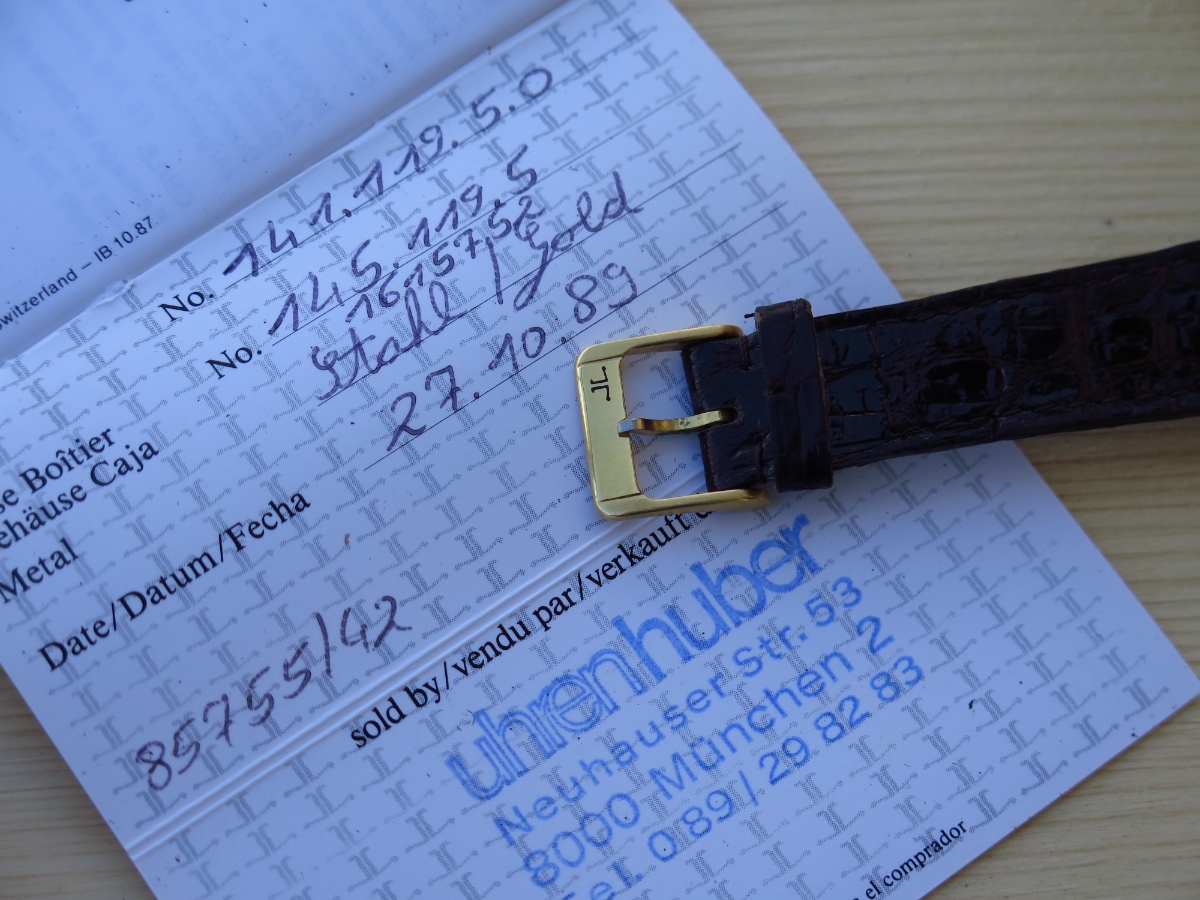 witzerland – IB 10.87
No. 141.119.5.0
No. 145.119.5
1615752
se Boîtier
ehäuse Caja
Metal Stahl/gold
Date/Datum/Fecha 27.10.89
85755/42
sold by/vendu par/verkauft
uhrenhuber
Neuhauser Str. 53
8000 München 2
Tel. 089/29 82 83
el comprador
JL